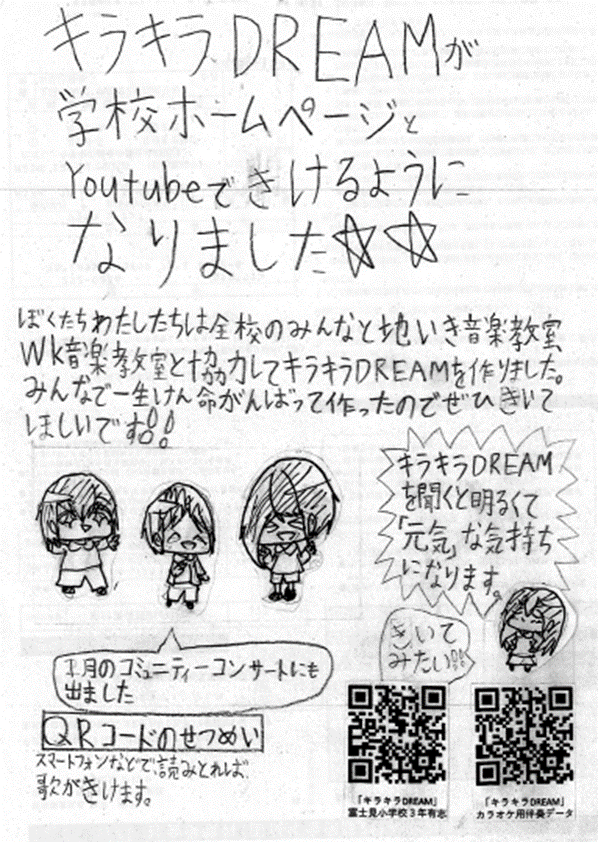 キラキラDREAMが
学校ホームページと
Youtubeできけるように
なりました☆☆
ぼくたちわたしたちは全校のみんなと地いき音楽教室
Wk音楽教室と協力してキラキラDREAMを作りました。
みんなで一生けん命がんばって作ったのでぜひきいて
ほしいです!!
キラキラDREAM
を聞くと明るくて
「元気」な気持ち
になります。
きいて
みたい!!
月のコミュニティーコンサートにも
出ました
QRコードのせつめい
スマートフォンなどで読みとれば、
歌がきけます。
「キラキラDREAM」
富士見小学校3年有志
「キラキラDREAM」
カラオケ用伴奏データ